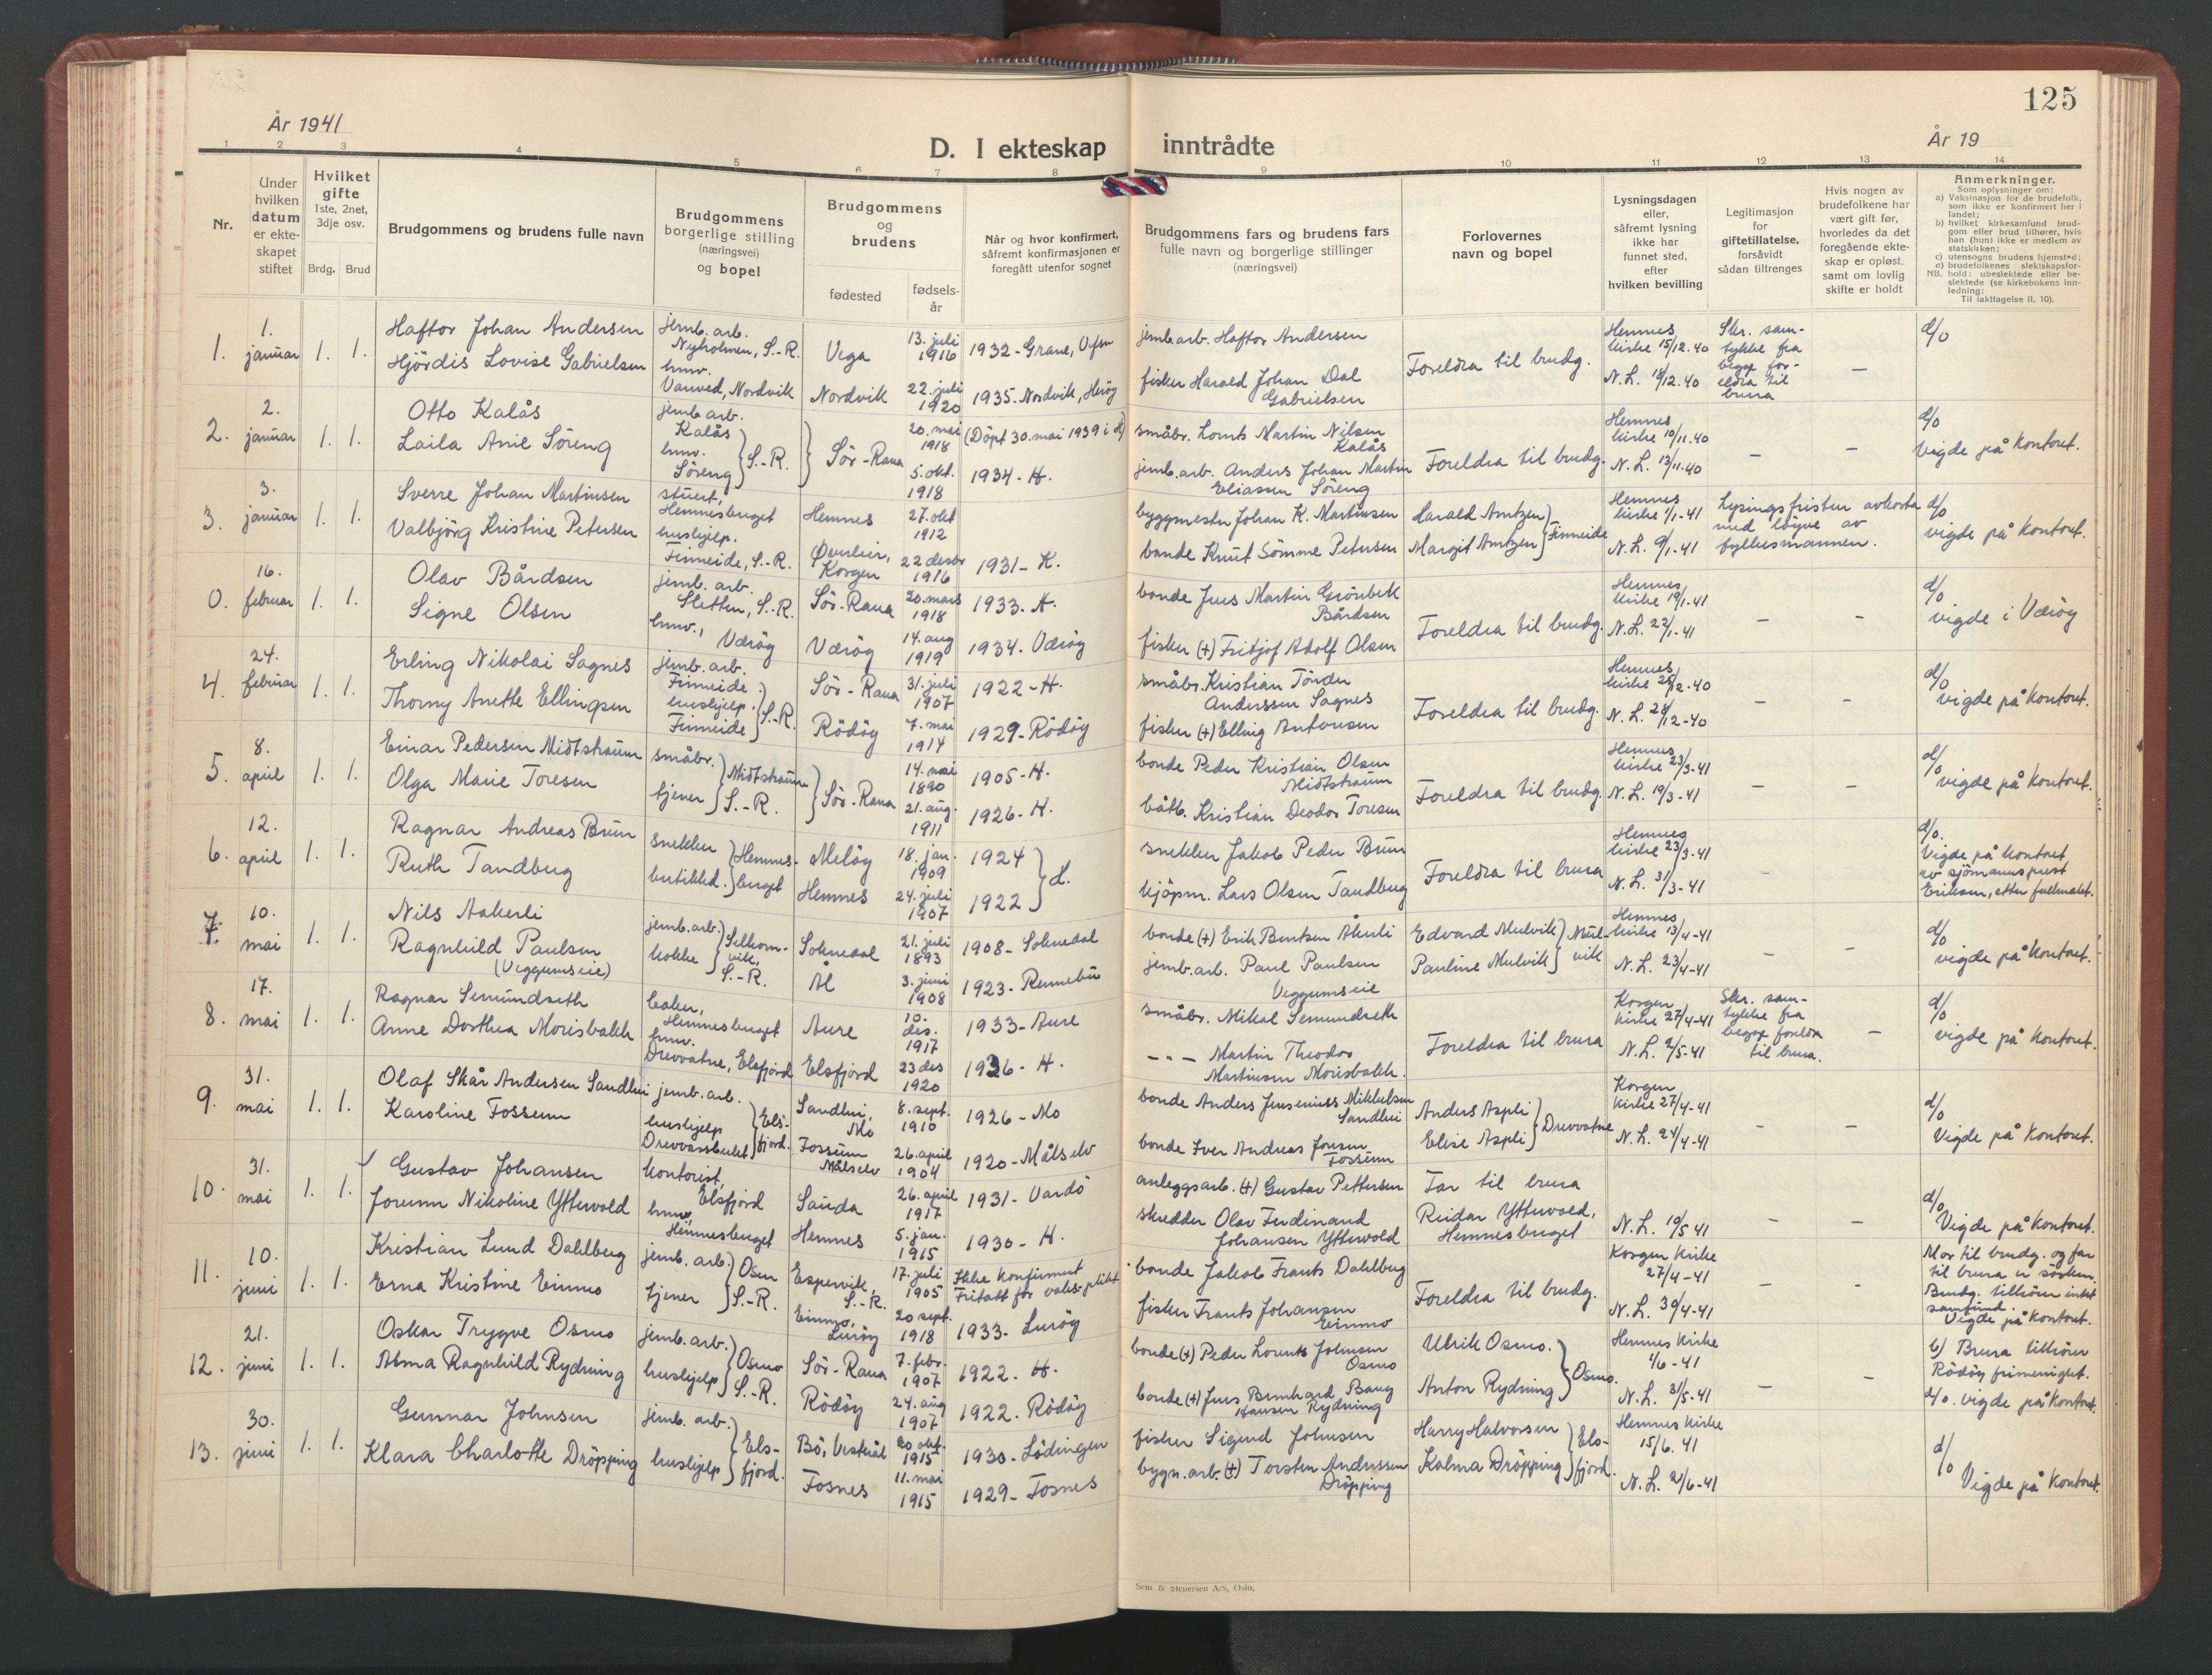 125
År 1941
År 19
D. I ekteskap inntrådte
1 2 3 4 5 6 7 8 9 10 11 12 13 14
Nr.
Under hvilken datum er ekteskapet stiftet
Hvilket gifte
1ste, 2net, 3dje osv.
Brdg. Brud
Brudgommens og brudens fulle navn
Brudgommens borgerlige stilling (næringsvei) og bopel
Brudgommens og brudens
fødested
fødselsår
Når og hvor konfirmert, såfremt konfirmasjonen er foregått utenfor sognet
Brudgommens fars og brudens fars fulle navn og borgerlige stillinger (næringsvei)
Forlovernes navn og bopel
Lysningsdagen eller, såfremt lysning ikke har funnet sted, efter hvilken bevilling
Legitimasjon for giftetillatelse, forsåvidt sådan tiltrenges
Hvis nogen av brudefolkene har vært gift før, hvorledes da det foregående ekteskap er opløst, samt om lovlig skifte er holdt
Anmerkninger.
Som oplysninger om:
a) Vaksinasjon for de brudefolk, som ikke er konfirmert her i landet;
b) hvilket kirkesamfund brudgom eller brud tilhører, hvis han (hun) ikke er medlem av statskirken;
c) utensogns brudens hjemsted;
d) brudefolkenes slektskapsforhold: ubeslektede eller beslektede (se kirkebokens innledning:
NB. Til iakttagelse II. 10).
1. 1. januar 1. 1. Haftor Johan Andersen jernb. arb. Nyholmen, S.-R. Vega 13. juli 1916 1932 - Grane, Vefsn jernb. arb. Haftor Andersen Foreldra til brudg. Hemnes kirke 15/12.40 Skr. samtykke fra begge foreldra til brura d/o
Hjördis Lovise Gabrielsen hmv. Nordvik Nordvik 22. juli 1920 1935. Nordvik, Heröy fisker Harald Johan Dal Gabrielsen N.L. 18/12.40 —
2. 2. januar 1. 1. Otto Kalås jernb. arb. Kalås S.-R. Sör-Rana 20. mai 1918 (Döpt 30. mai 1939 i H) småbr. Lornts Martin Nilsen Kalås Foreldra til brudg. Hemnes kirke 10/11.40 — — d/o
Laila Anie Söreng hmv. Söreng 5. okt. 1918 1934 - H. jernb. arb. Anders Johan Martin Eliassen Söreng N.L. 13/11.40 Vigde på kontoret.
3. 3. januar 1. 1. Sverre Johan Martinsen stuert, Hemnesberget Hemnes 27. okt 1912 byggmester Johan K. Martinsen Harald Arntzen Finneide Hemnes kirke 1/1-41 Lysingsfristen avkorta med löyve av fylkesmannen. d/o
Valbjörg Kristine Petersen hushjelp. Finneide, S.-R. Korgen 22 desbr 1916 1931 - K. bonde Knut Sömme Petersen Margit Arntzen N.L. 9/1-41 vigde på kontoret.
0. 16. februar 1. 1. Olav Bårdsen jernb. arb. Sletten, S.-R. Sör-Rana 20. mars 1918 1933 - H. bonde Jens Martin Grönbek Bårdsen Foreldra til brudg. Hemnes kirke 19/1-41 — — d/o
Signe Olsen hmv., Væröy Væröy 14. aug 1919 1934. Væröy fisker (+) Fritjof Adolf Olsen N.L. 22/1-41 vigde i Væröy
4. 24. februar 1. 1. Erling Nikolai Sagnes jernb. arb. Finneide S.-R. Sör-Rana 31. juli 1907 1922 - H. småbr. Kristian Tönder Anderssen Sagnes Foreldra til brudg. Hemnes kirke 12-40 — — d/o
Thorny Anette Ellingsen hushjelp, Finneide Rödöy 7. mai 1914 1929 - Rödöy fisker (+) Elling Antonsen N.L. 12-40 vigde på kontoret.
5. 8. april 1. 1. Einar Pedersen Midtstraum småbr. Midtstraum S.-R. Sör-Rana 14. mai 1890 1905 - H. bonde Peder Kristian Olsen Midtstraum Foreldra til brudg. Hemnes kirke 23/3-41 — — d/o
Olga Marie Toresen tjener 21. aug. 1911 1926 - H. båtb. Kristian Deodor Toresen N.L. 19/3-41 vigde på kontoret.
6. 12. april 1. 1. Ragnar Andreas Brun snekker Hemnesberget Melöy 18. jan. 1909 1924 H. snekker Jakob Peder Brun Foreldra til brura Hemnes kirke 23/3-41 — d/o.
Ruth Tandberg butikkd. Hemnes 24. juli 1907 1922 kjöpm. Lars Olsen Tandberg N.L. 31/3-41 Vigde på kontoret av sjömannsprest Eriksen, etter fullmakt.
7. 10. mai 1. 1. Nils Aakerli jernb. arb. S.-R. Soknedal 21. juli 1893 1908 - Soknedal bonde (+) Erik Bentsen Åkerli Edvard Mulvik Mulvik Hemnes kirke 13/4-41 — — d/o
Ragnhild Paulsen (Veggumseie) kokke Ål 3. juni 1908 1923 - Rennebu jernb. arb. Paul Paulsen Veggumseie Pauline Mulvik N.L. 23/4-41 vigde på kontoret.
8. 17. mai 1. 1. Ragnar Semundseth baker, Hemnesberget Aure 10. des. 1917 1933 - Aure småbr. Mikal Semundseth Foreldra til brura Korgen kirke 27/4-41 Skr. samtykke fra begge foreldra til brura. — d/o
Anne Dorthea Morisbakk hmv. Drevvatne, Elsfjord Elsfjord 23 des 1920 1936 - H. - - - Martin Theodor Martinsen Morisbakk. N.L. 2/5-41 vigde på kontoret.
9. 31. mai 1. 1. Olaf Skår Andersen Sandhei jernb. arb. Elsfjord. Sandhei, Mo 8. sept. 1910 1926 - Mo bonde Anders Jenseniuss Mikkelsen Sandhei Anders Aspli Drevvatne Korgen kirke 27/4-41 — — d/o
Karoline Fossum hushjelp Fossum Målselv 26. april 1904 1920 - Målselv bonde Iver Andreas Jonsen Fossum Elise Aspli N.L. 24/4-41 Vigde på kontoret.
10. 31. mai 1. 1. Gustav Johansen kontorist, Elsfjord Sauda 26. april 1917 1931 - Vardö anleggsarb. (+) Gustav Pettersen Far til brura d/o
Jorunn Nikoline Yttervold hmv, Hemnesberget Hemnes 5. jan. 1915 1930 - H. skredder Olav Ferdinand Johansen Yttervold Reidar Yttervold, Hemnesberget N.L. 10/5 41 — — Vigde på kontoret.
11. 10. juni 1. 1. Kristian Lund Dahlberg jernb. arb. Osen S.-R. Espervik, S.-R. 17. juli 1905 Ikke konfirmert bonde Jakob Frants Dahlberg Foreldra til brudg. Korgen kirke 27/4-41 — - Mor til brudg. og far til brura er sösken. Brudg. tilhörer intet samfund.
Erna Kristine Einmo tjener Einmo, Luröy 20 sept. 1918 1933 - Luröy fisker Frants Johansen Einmo N.L. 30/4-41 Vigde på kontoret.
12. 21. juni 1. 1. Oskar Trygve Osmo jernb. arb. Osmo S.-R. Sör-Rana 7. febr. 1907 1922. H. bonde (+) Peder Lornts Johnsen Osmo Ulrik Osmo. Osmo. Hemnes kirke 1/6-41 — - b/ Brura tilhörer Rödöy frimenighet.
Alma Ragnhild Rydning hushjelp Rödöy 24. aug 1907 1922. Rödöy bonde (+) Jens Bernhard Bang Hansen Rydning Anton Rydning N.L. 31/5-41 d/o. vigde på kontoret.
13. 30. juni 1. 1. Gunnar Johnsen jernb. arb. Elsfjord. Bö, Vesterål 20 okt. 1915 1930 - Lödingen fisker Sigurd Johnsen Harry Halvorsen Elsfjord. Hemnes kirke 15/6. 41 d/o
Klara Charlotte Dröpping hushjelp Fosnes 11. mai 1915 1929 - Fosnes bygn. arb. (+) Torsten Anderssen Dröpping Kalma Dröpping N.L. 2/6-41 Vigde på kontoret.
Sem & Stenersen A/S, Oslo.